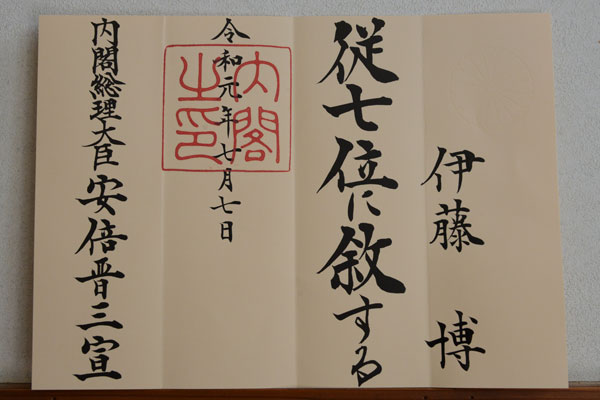 伊藤 博
従七位に敘する
令和元年七月七日
内閣之印
内閣総理大臣 安倍晋三宣